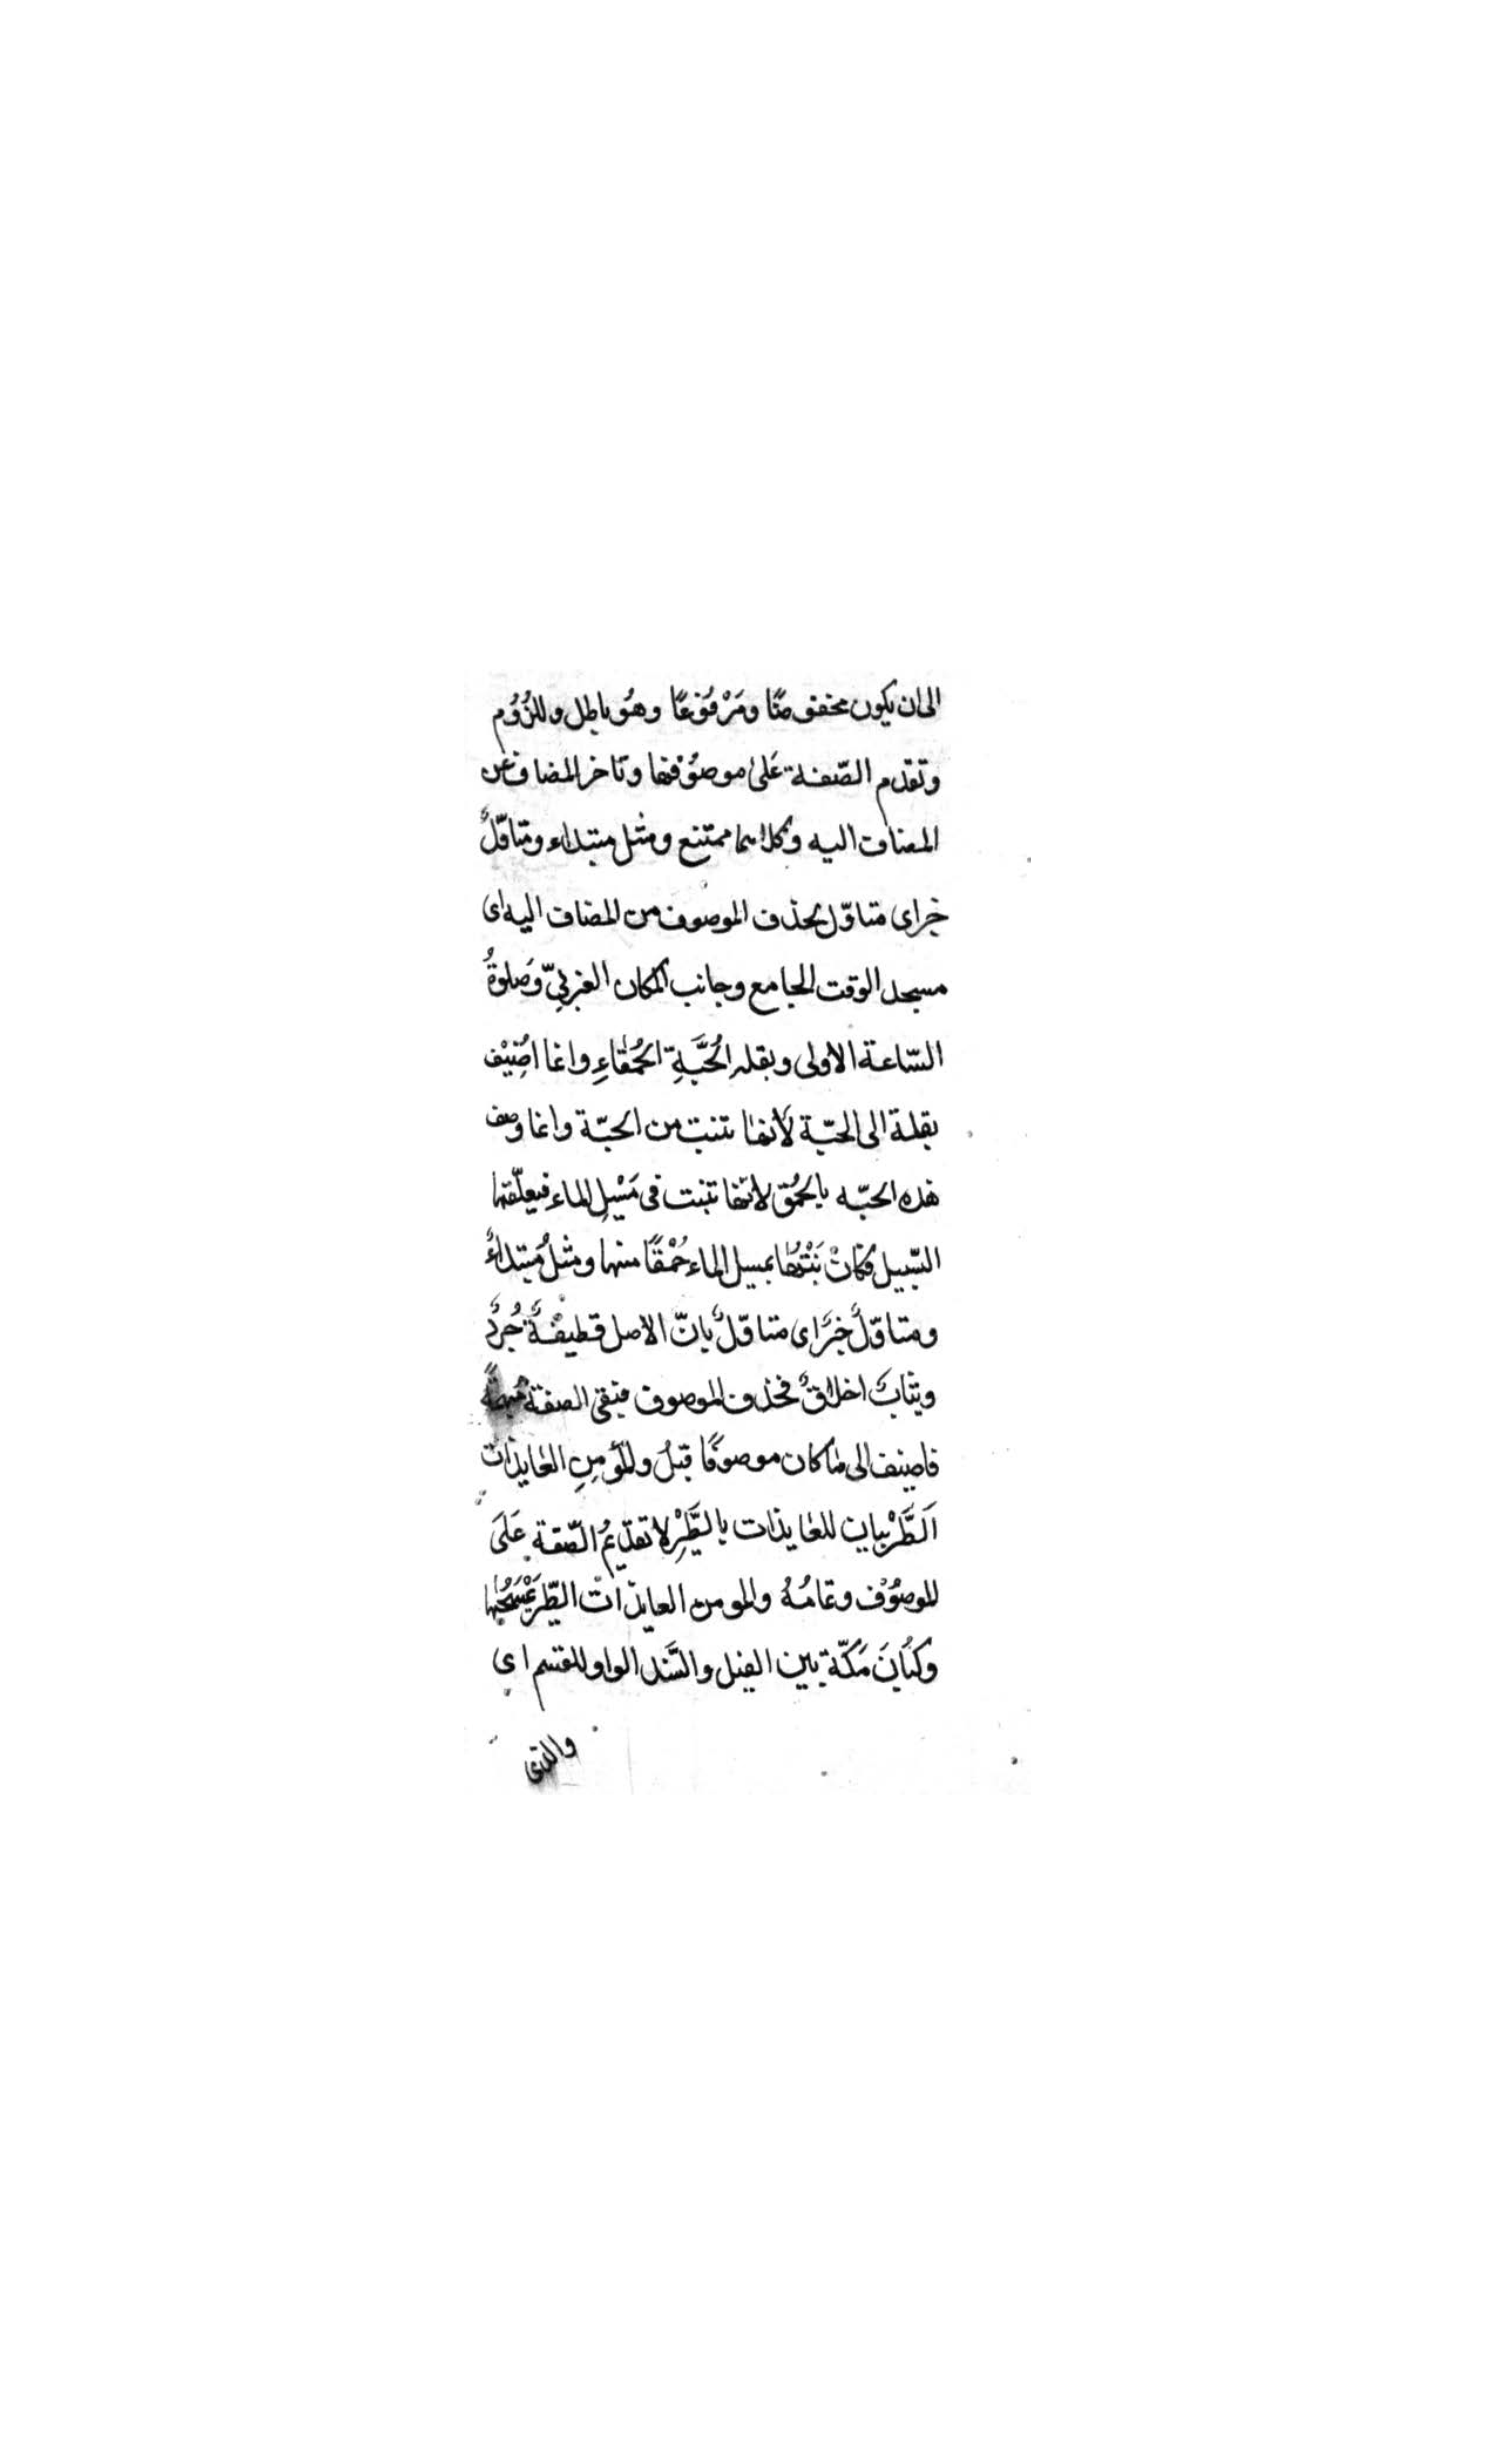 الى ان يكون مخفوضًا ومَرْفُوْعًا وهُو باطل وللزُوُم
وتقدم الصّفة عَلىٰ موصُوْفها وتاخر المضاف عن
المضاف اليه وكلاهما ممتنع ومثل مبتداء ومتاوّلٌ
خبر اى متاوّل بحذف الموصوف من المضاف اليه اى
مسجد الوقت الجامع وجانب المكان الغربيّ وصَلوةُ
السّاعة الاولى وبقلہ الحُبَّةِ الحُمَقاءِ وانما اُضِيْف
بقلة الى الحبّة لأنها تنبت من الحبّة وانما وصف
هذه الحبّه بالحُمُق لانّها تنبت فى مَسْيِل الماء فيعلّقها
السّبيل فكانْ نَبْتُهَا بمسيل الماء حُمْقًا منها ومثلُ مُبتداءٌ
ومتاوّلٌ خبرٌ اى متاوّلٌ بانّ الاصل قطيفْةٌ جُردٌ
وثيابٌ اخلاقٌ فحذف الموصوف فبقى الصفة مُبهمةً
فاضيف الى ما كان موصوفًا قبلُ والمُؤْمِنِ العَايذات
اَلطَّيْرْ بيان للعايذات بالطَّيْرِ لا تقدّيمُ الصّفة عَلىٰ
الموصُوْف وتمامُهُ والمومن العايذات الطّير يَمْسَحُها
وكبَانَ مَكّة بين الفيل والسَّند الواو للقسم اى
والذى